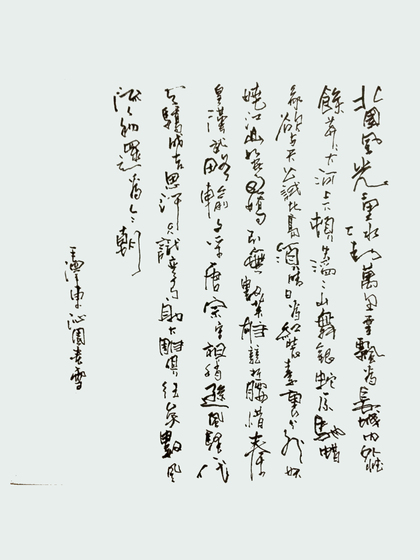 北國風光千里冰封萬里雪飄望長城內外惟
餘莽莽大河上下頓失滔滔山舞銀蛇原馳蠟
象欲與天公試比高須晴日看紅裝素裹分外妖
嬈江山如此多嬌引無數英雄競折腰惜秦
皇漢武略輸文采唐宗宋祖稍遜風騷一代
天驕成吉思汗只識彎弓射大雕俱往矣數風
流人物還看今朝
毛澤東沁園春雪